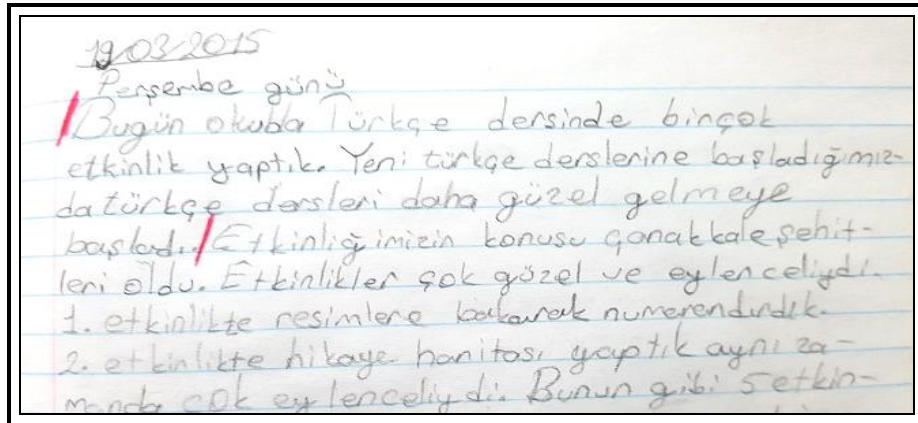 19.03.2015
Perşembe günü
Bugün okulda Türkçe dersinde birçok
etkinlik yaptık. Yeni türkçe derslerine başladığımız-
da türkçe dersleri daha güzel gelmeye
başladı. Etkinliğimizin konusu çanakkale şehit-
leri oldu. Etkinlikler çok güzel ve eylenceliydi.
1. etkinlikte resimlere bakarak numerendırdık.
2. etkinlikte hikaye haritası yaptık aynı za-
manda çok eylenceliydi. Bunun gibi 5 etkin-